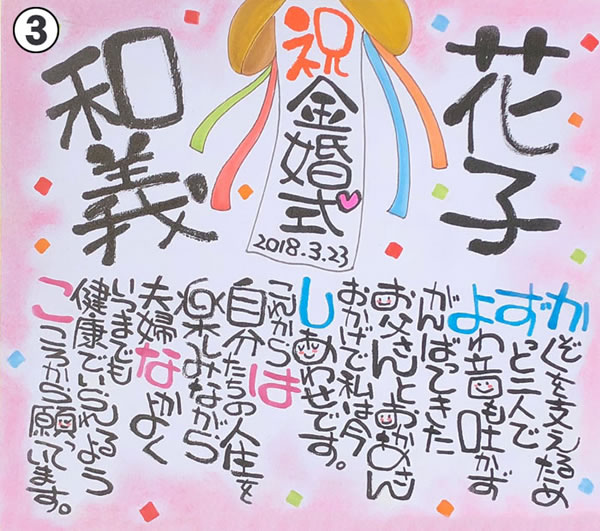 ③
花子
祝
金婚式
2018.3.23
和義
かぞくを支えるため
ずっと二人で
よわ音も吐かず
がんばってきた
お父さんとおかあさん
おかげで私は今
しあわせです。
これからは
自分たちの人生を
楽しみながら
夫婦なかよく
いつまでも
健康でいられるよう
こころから願っています。